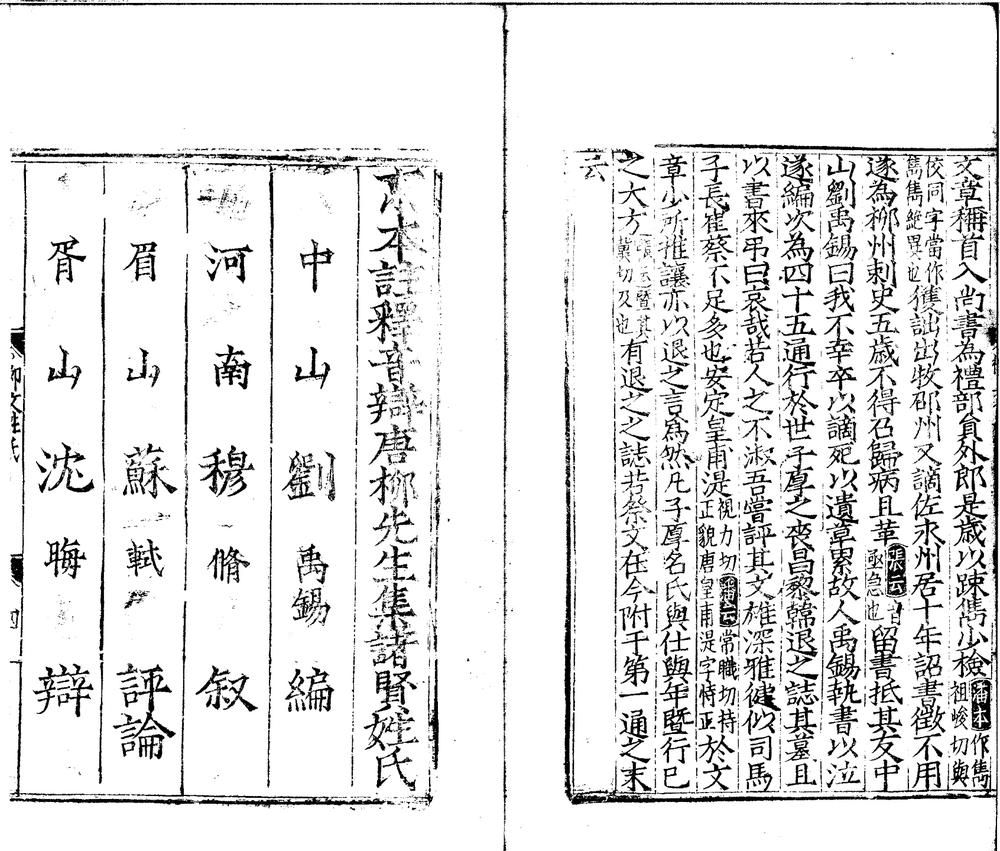 文章稱首入尚書為禮部員外郎是歲以踈雋少檢潘本作雋祖峻切與
俊同字當作雋雋絶異也獲訕出牧邵州又謫佐永州居十年詔書徵不用
遂為柳州刺史五歲不得召歸病且革張云音亟急也留書抵其友中
山劉禹錫曰我不幸卒以謫死以遺草累故人禹錫執書以泣
遂編次為四十五通行於世子厚之喪昌黎韓退之誌其墓且
以書來弔曰哀哉若人之不淑吾嘗評其文雄深雅健似司馬
子長崔蔡不足多也安定皇甫湜視力切正貌唐皇甫湜字持正潘云常職切持於文
章少所推讓亦以退之言為然凡子厚名氏與仕與年暨行已
之大方張云暨其冀切及也有退之之誌若祭文在今附于第一通之末
云
京本註釋音辯唐柳先生集諸賢姓氏
中山劉禹錫編
河南穆脩叙
眉山蘇軾評論
胥山沈晦辯
柳文姓氏
四